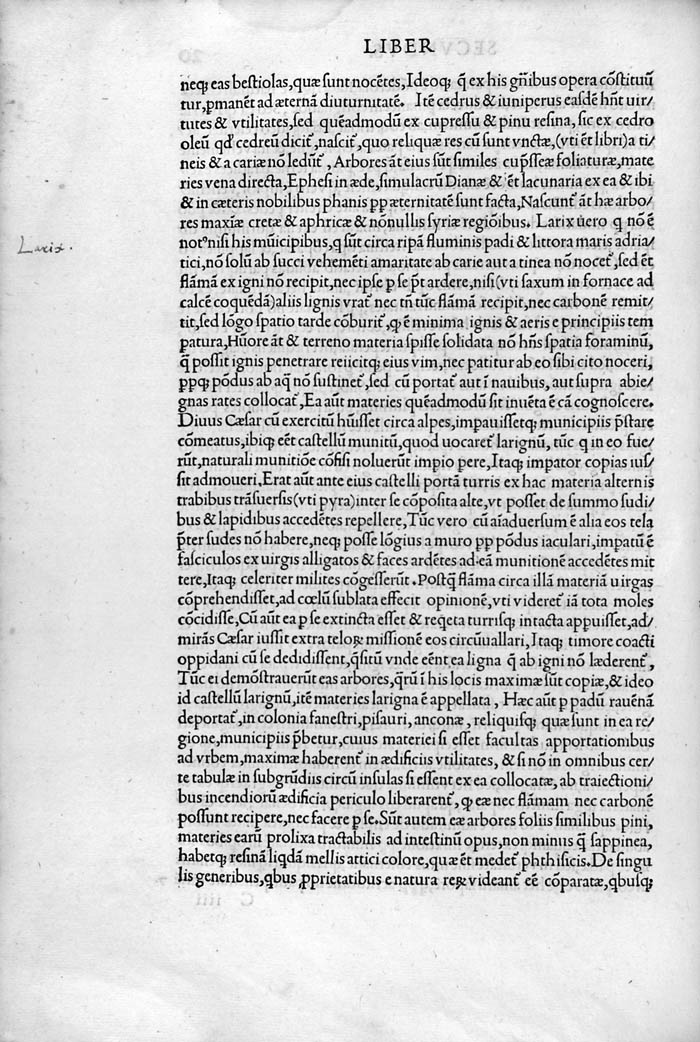 LIBER
neq; eas bestiolas, quæ sunt nocẽtes, Ideoq; q̃ ex his gñibus opera cõstituũ
tur, ꝑmanẽt ad æternã diuturnitatẽ. Itẽ cedrus & iuniperus easdẽ hñt uir/
tutes & vtilitates, sed quẽadmodũ ex cupressu & pinu resina, sic ex cedro
oleũ qď cedreũ dicit᷑, nascit᷑, quo reliquæ res cũ sunt vnctæ, (vti ẽt libri) a ti/
neis & a cariæ nõ ledũt᷑, Arbores ãt eius sũt similes cup̃sseæ foliaturæ, mate
ries vena directa, Ephesi in æde, simulacrũ Dianæ & ẽt lacunaria ex ea & ibi
& in cæteris nobilibus phanis ꝓꝑ æternitatẽ sunt facta, Nascunt᷑ ãt hæ arbo/
res maxiæ cretæ & aphricæ & nõnullis syriæ regiõibus. Larix uero q nõ ẽ
Larix.
notꝰ nisi his mũicipibus, q̃ sũt circa ripã fluminis padi & littora maris adria/
tici, nõ solũ ab succi vehemẽti amaritate ab carie aut a tinea nõ nocet᷑, sed ẽt
flãmã ex igni nõ recipit, nec ipse ꝑ se p̃t ardere, nisi (vti saxum in fornace ad
calcẽ coquẽdã) aliis lignis vrat᷑ nec tñ tũc flãmã recipit, nec carbonẽ remit/
tit, sed lõgo spatio tarde cõburit᷑, ꝙ ẽ minima ignis & aeris e principiis tem
patura, Hũore ãt & terreno materia spisse solidata nõ hñs spatia foraminũ,
q̃ possit ignis penetrare reiicitq; eius vim, nec patitur ab eo sibi cito noceri,
ꝓꝑq; põdus ab aq̃ nõ sustinet᷑, sed cũ portat᷑ aut ĩ nauibus, aut supra abie/
gnas rates collocat᷑, Ea aũt materies quẽadmodũ sit inuẽta ẽ cã cognoscere.
Diuus Cæsar cũ exercitũ hũisset circa alpes, impauissetq; municipiis p̃stare
cõmeatus, ibiq; eẽt castellũ munitũ, quod uocaret᷑ larignũ, tũc q in eo fue/
rũt, naturali munitiõe cõfisi noluerũt impio ꝑere, Itaq; impator copias ius/
sit admoueri, Erat aũt ante eius castelli portã turris ex hac materia alternis
trabibus trãsuersis (vti pyra) inter se cõposita alte, vt posset de summo sudi/
bus & lapidibus accedẽtes repellere, Tũc vero cũ aĩaduersum ẽ alia eos tela
p̃ter sudes nõ habere, neq; posse lõgius a muro ꝓꝑ põdus iaculari, impatũ ẽ
fasciculos ex uirgis alligatos & faces ardẽtes ad eã munitionẽ accedẽtes mit
tere, Itaq; celeriter milites cõgesserũt. Postq̃ flãma circa illã materiã uirgas
cõprehendisset, ad cœlũ sublata effecit opinionẽ, vti videret᷑ iã tota moles
cõcidisse, Cũ aũt ea ꝑ se extincta esset & req̃eta turrisq; intacta appuisset, ad/
mirãs Cæsar iussit extra teloꝝ missionẽ eos circũuallari, Itaq; timore coacti
oppidani cũ se dedidissent, q̃sitũ vnde eẽnt ea ligna q̃ ab igni nõ læderent᷑,
Tũc ei demõstrauerũt eas arbores, q̃rũ ĩ his locis maximæ sũt copiæ, & ideo
id castellũ larignũ, itẽ materies larigna ẽ appellata, Hæc aũt ꝑ padũ rauẽnã
deportat᷑, in colonia fanestri, pisauri, anconæ, reliquisq; quæ sunt in ea re/
gione, municipiis p̃betur, cuius materiei si esset facultas apportationibus
ad vrbem, maximæ haberent᷑ in ædificiis vtilitates, & si nõ in omnibus cer/
te tabulæ in subgrũdiis circũ insulas si essent ex ea collocatæ, ab traiectioni/
bus incendiorũ ædificia periculo liberarent᷑, ꝙ eæ nec flãmam nec carbonẽ
possunt recipere, nec facere ꝑ se. Sũt autem eæ arbores foliis similibus pini,
materies earũ prolixa tractabilis ad intestinũ opus, non minus q̃ sappinea,
habetq; resinã liqdã mellis attici colore, quæ ẽt medet᷑ phthisicis. De singu
lis generibus, qbus ꝓprietatibus e natura reꝝ videant᷑ eẽ cõparatæ, qbusq;